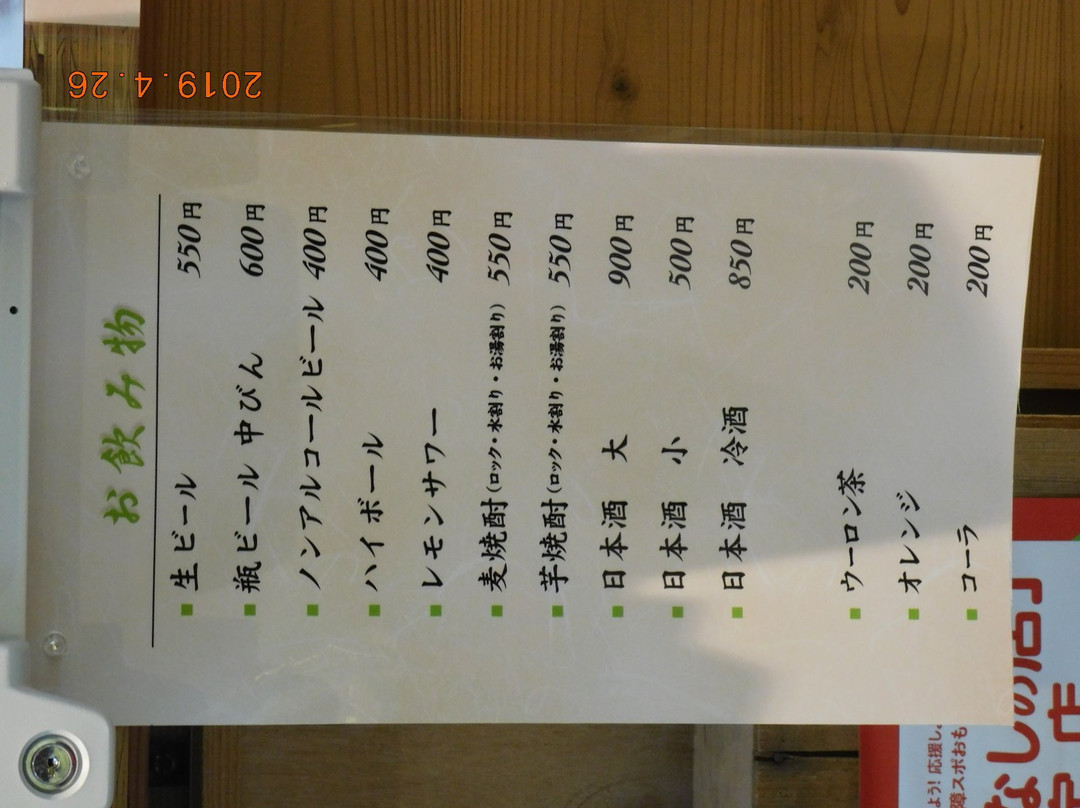 2019.4.26
お飲み物
生ビール 550円
瓶ビール 中びん 600円
ノンアルコールビール 400円
ハイボール 400円
レモンサワー 400円
麦焼酎(ロック・水割り・お湯割り) 550円
芋焼酎(ロック・水割り・お湯割り) 550円
日本酒 大 900円
日本酒 小 500円
日本酒 冷酒 850円
ウーロン茶 200円
オレンジ 200円
コーラ 200円
よう!応援し
障スポおも
なしの店」
店